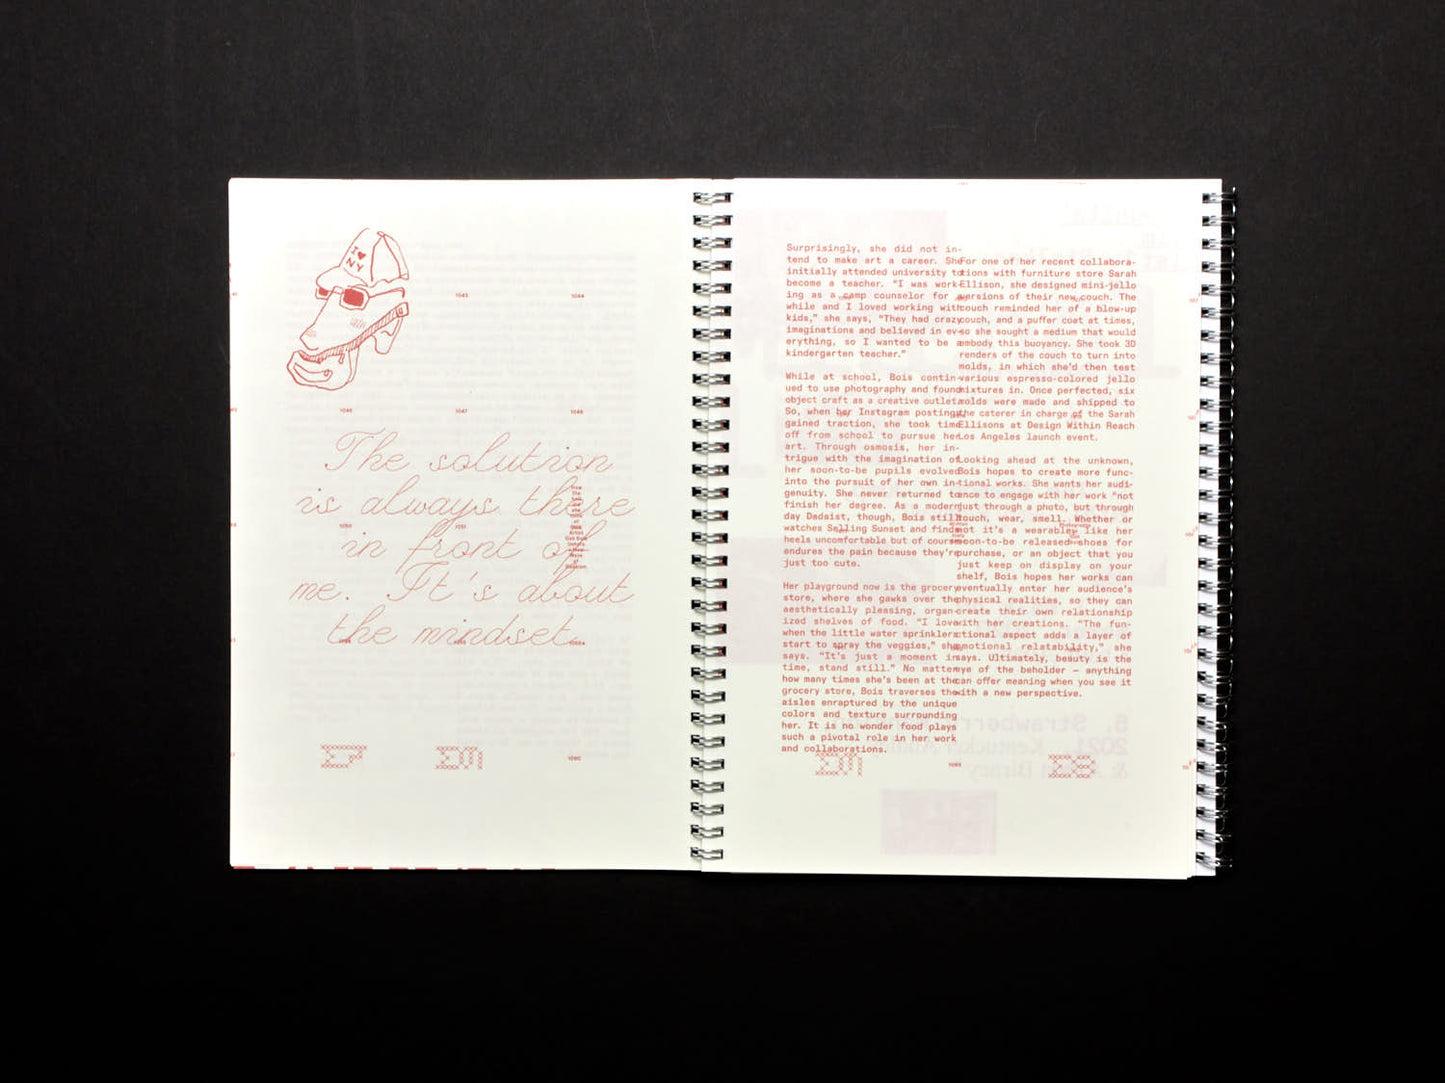 I ♥
NY
1043
1044
1046
1047
1048
The solution
is always there
in front of
me. It's about
the mindset.
1050
1051
1060
Surprisingly, she did not in-
tend to make art a career. She
initially attended university to
become a teacher. “I was work-
ing as a camp counselor for a
while and I loved working with
kids,” she says, “They had crazy
imaginations and believed in ev-
erything, so I wanted to be a
kindergarten teacher.”
While at school, Bois contin-
ued to use photography and found
object craft as a creative outlet.
So, when her Instagram posting
gained traction, she took time
off from school to pursue her
art. Through osmosis, her in-
trigue with the imagination of
her soon-to-be pupils evolved
into the pursuit of her own in-
genuity. She never returned to
finish her degree. As a modern
day Dadaist, though, Bois still
watches Selling Sunset and finds
heels uncomfortable but of course
endures the pain because they're
just too cute.
Her playground now is the grocery
store, where she gawks over the
aesthetically pleasing, organ-
ized shelves of food. “I love
when the little water sprinklers
start to spray the veggies,” she
says. “It's just a moment in
time, stand still.” No matter
how many times she's been at the
grocery store, Bois traverses the
aisles enraptured by the unique
colors and texture surrounding
her. It is no wonder food plays
such a pivotal role in her work
and collaborations.
For one of her recent collabora-
tions with furniture store Sarah
Ellison, she designed mini-jello
versions of their new couch. The
couch reminded her of a blow-up
couch, and a puffer coat at times,
so she sought a medium that would
embody this buoyancy. She took 3D
renders of the couch to turn into
molds, in which she'd then test
various espresso-colored jello
mixtures in. Once perfected, six
molds were made and shipped to
the caterer in charge of the Sarah
Ellisons at Design Within Reach
Los Angeles launch event.
Looking ahead at the unknown,
Bois hopes to create more func-
tional works. She wants her audi-
ence to engage with her work “not
just through a photo, but through
touch, wear, smell. Whether or
not it's a wearable, like her
soon-to-be released shoes for
purchase, or an object that you
just keep on display on your
shelf, Bois hopes her works can
eventually enter her audience's
physical realities, so they can
create their own relationship
with her creations. “The fun-
ctional aspect adds a layer of
emotional relatability,” she
says. Ultimately, beauty is the
eye of the beholder — anything
can offer meaning when you see it
with a new perspective.